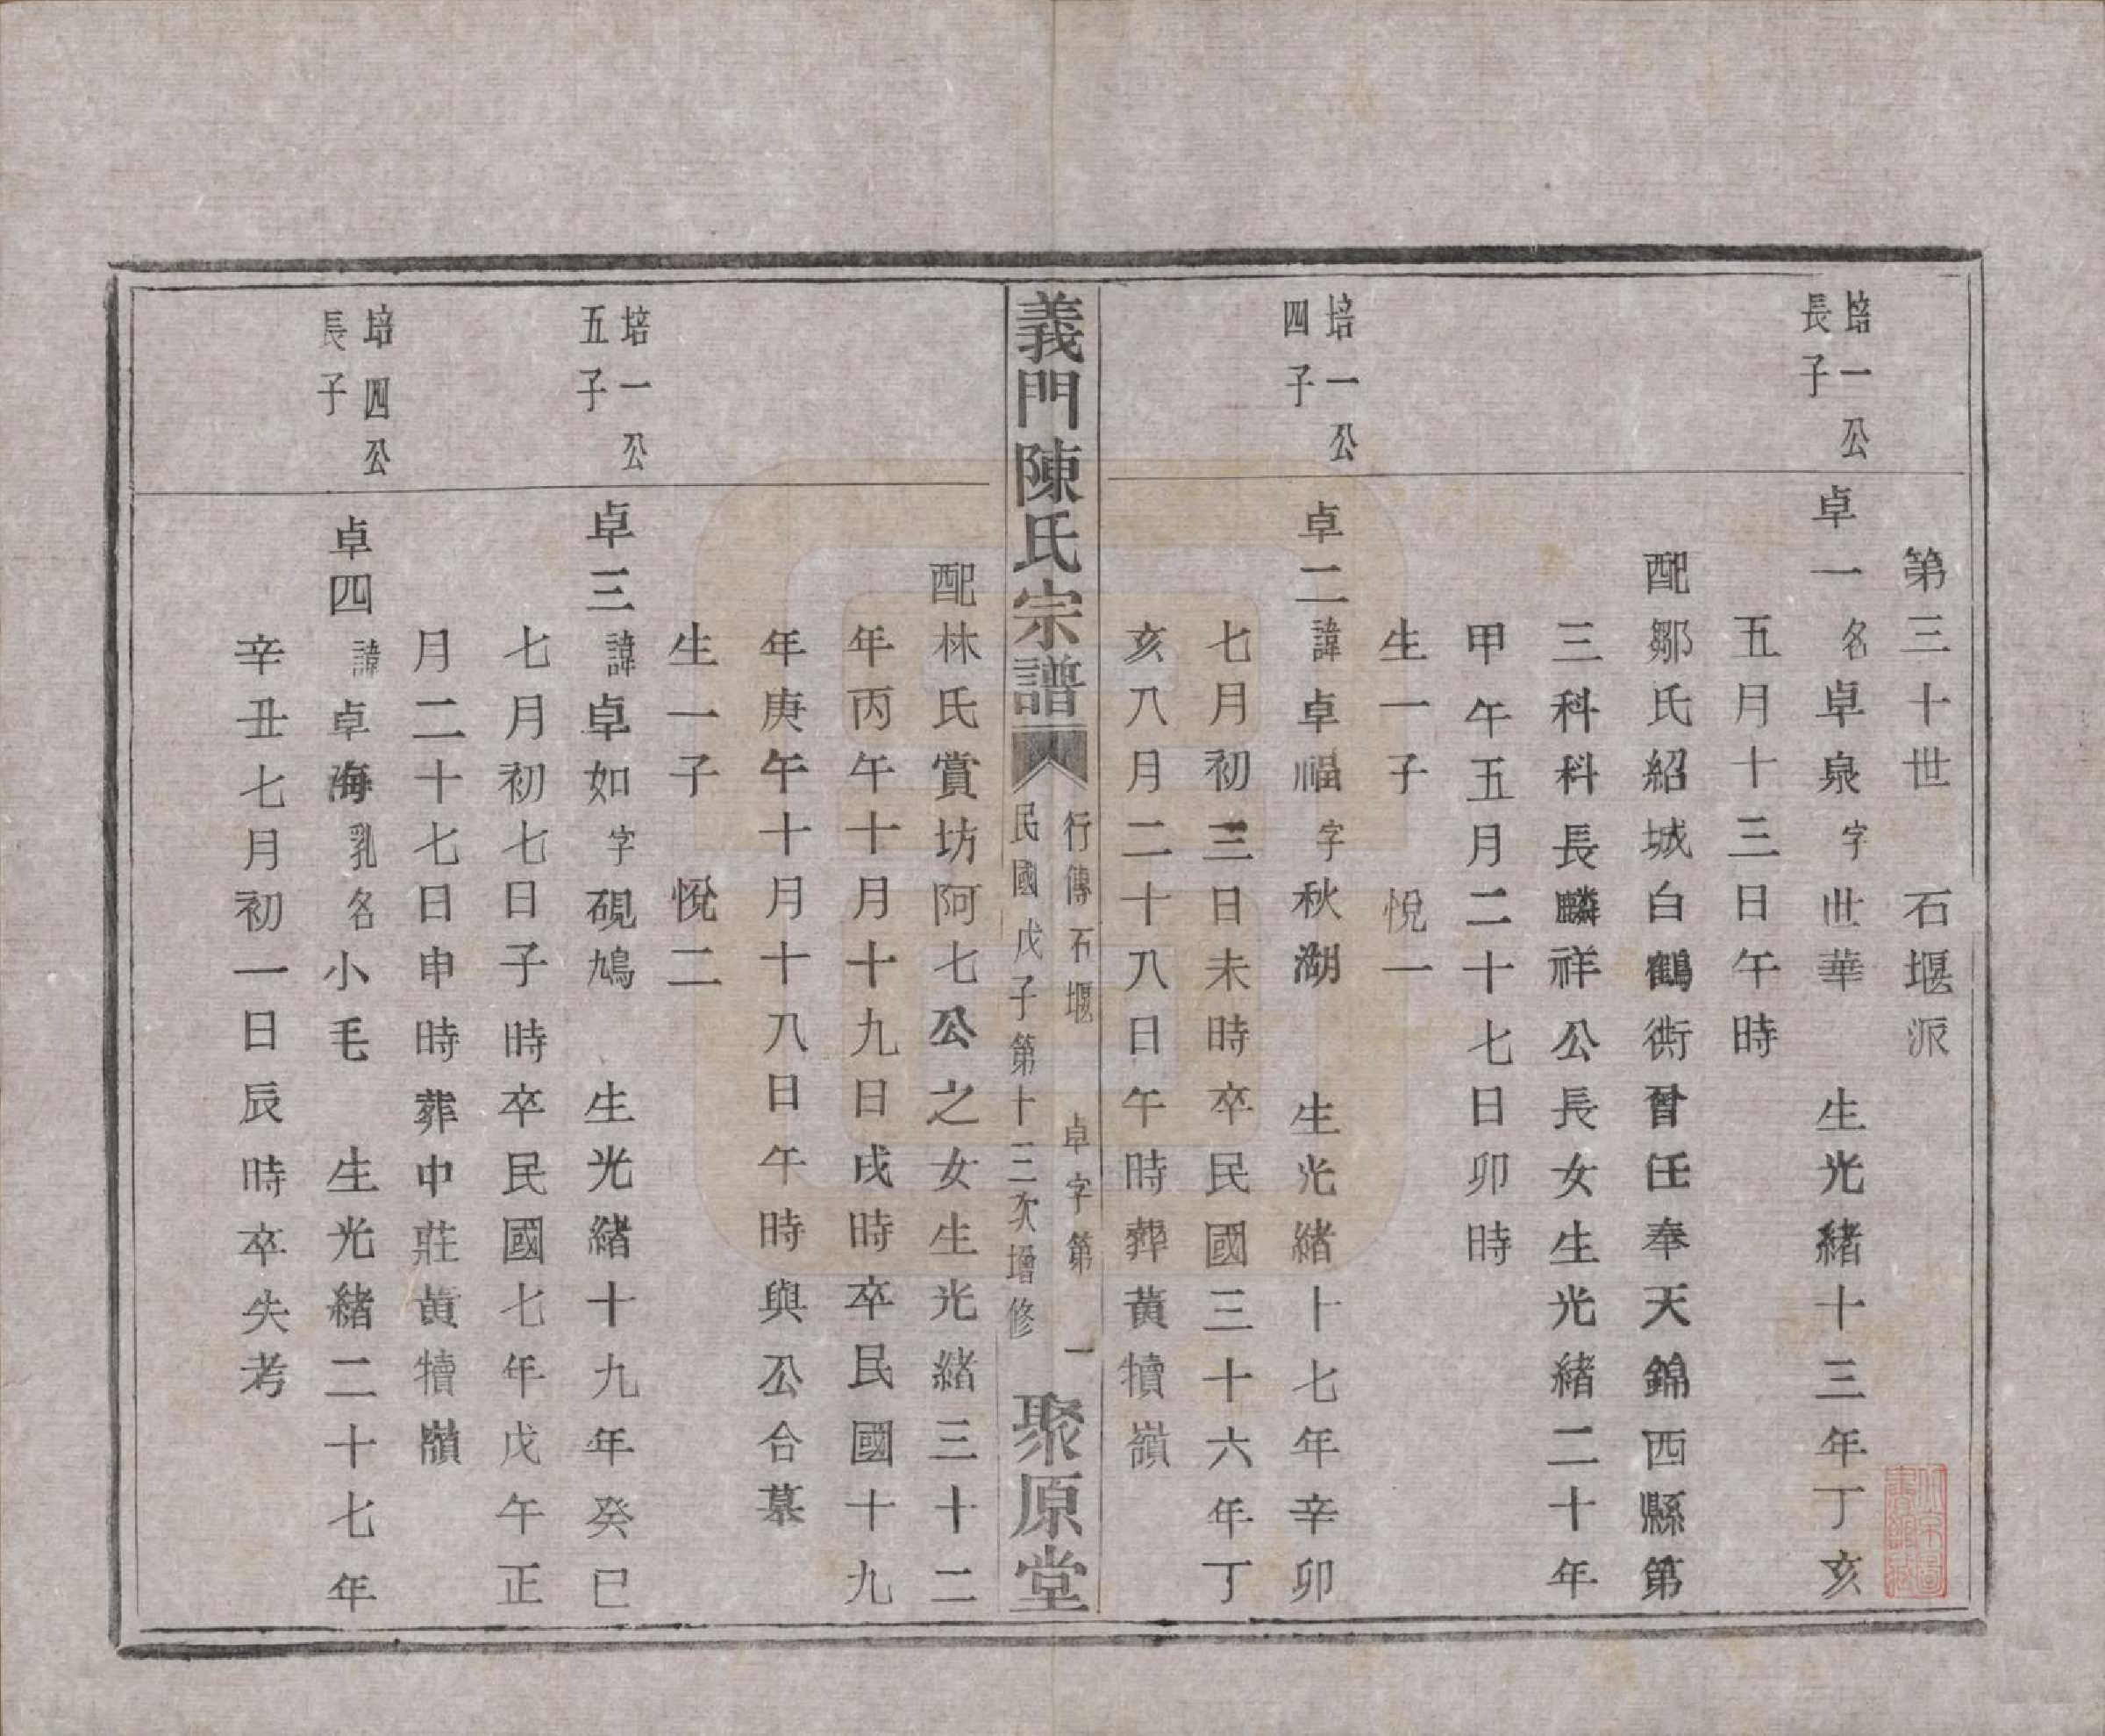 第三十世　石堰派
培一公
長子
卓一名卓泉字世華　生光緒十三年丁亥
五月十三日午時
配鄒氏紹城白鶴衖曾任奉天錦西縣第
三科科長麟祥公長女生光緒二十年
甲午五月二十七日卯時
生一子　悅一
培一公
四子
卓二諱卓福字秋湖　生光緒十七年辛卯
七月初三日未時卒民國三十六年丁
亥八月二十八日午時葬黃犢嶺
義門陳氏宗譜
行傳石堰　卓字第　一
民國戊子第十三次增修
聚原堂
配林氏賞坊阿七公之女生光緒三十二
年丙午十月十九日戌時卒民國十九
年庚午十月十八日午時與公合墓
生一子　悅二
培一公
五子
卓三諱卓如字硯鳩　生光緒十九年癸巳
七月初七日子時卒民國七年戊午正
月二十七日申時葬中莊黃犢嶺
培四公
長子
卓四諱卓海乳名小毛　生光緒二十七年
辛丑七月初一日辰時卒失考